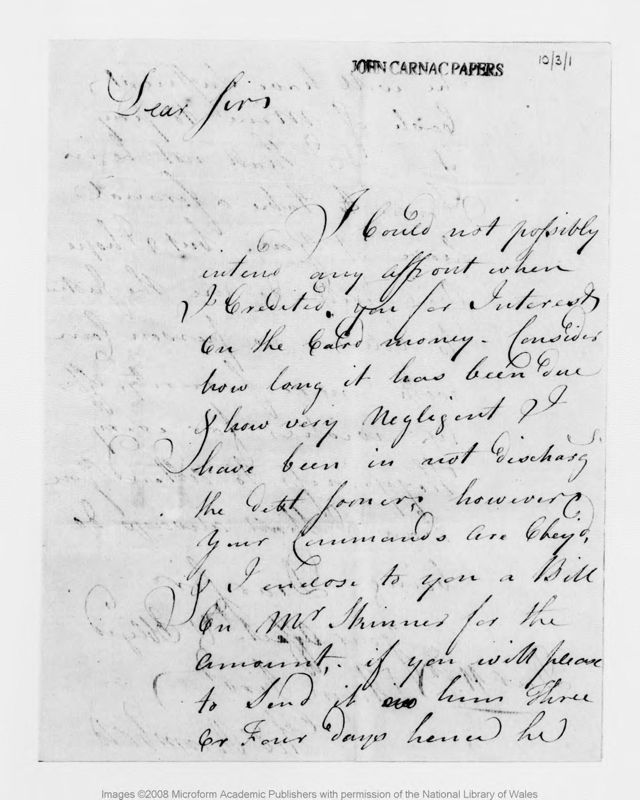 JOHN CARNAC PAPERS
10/3/1
Dear Sir
I Could not possibly
intend any affront when
I Credited you for Interest
On the Card money. Consider
how long it has been due
& how very Negligent I
have been in not discharg
the debt sooner; however
Your Commands are Obey'd,
& I enclose to you a Bill
On Mr Skinner for the
amount, if you will please
to Send it him Three
Or Four days hence he
Images ©2008 Microform Academic Publishers with permission of the National Library of Wales